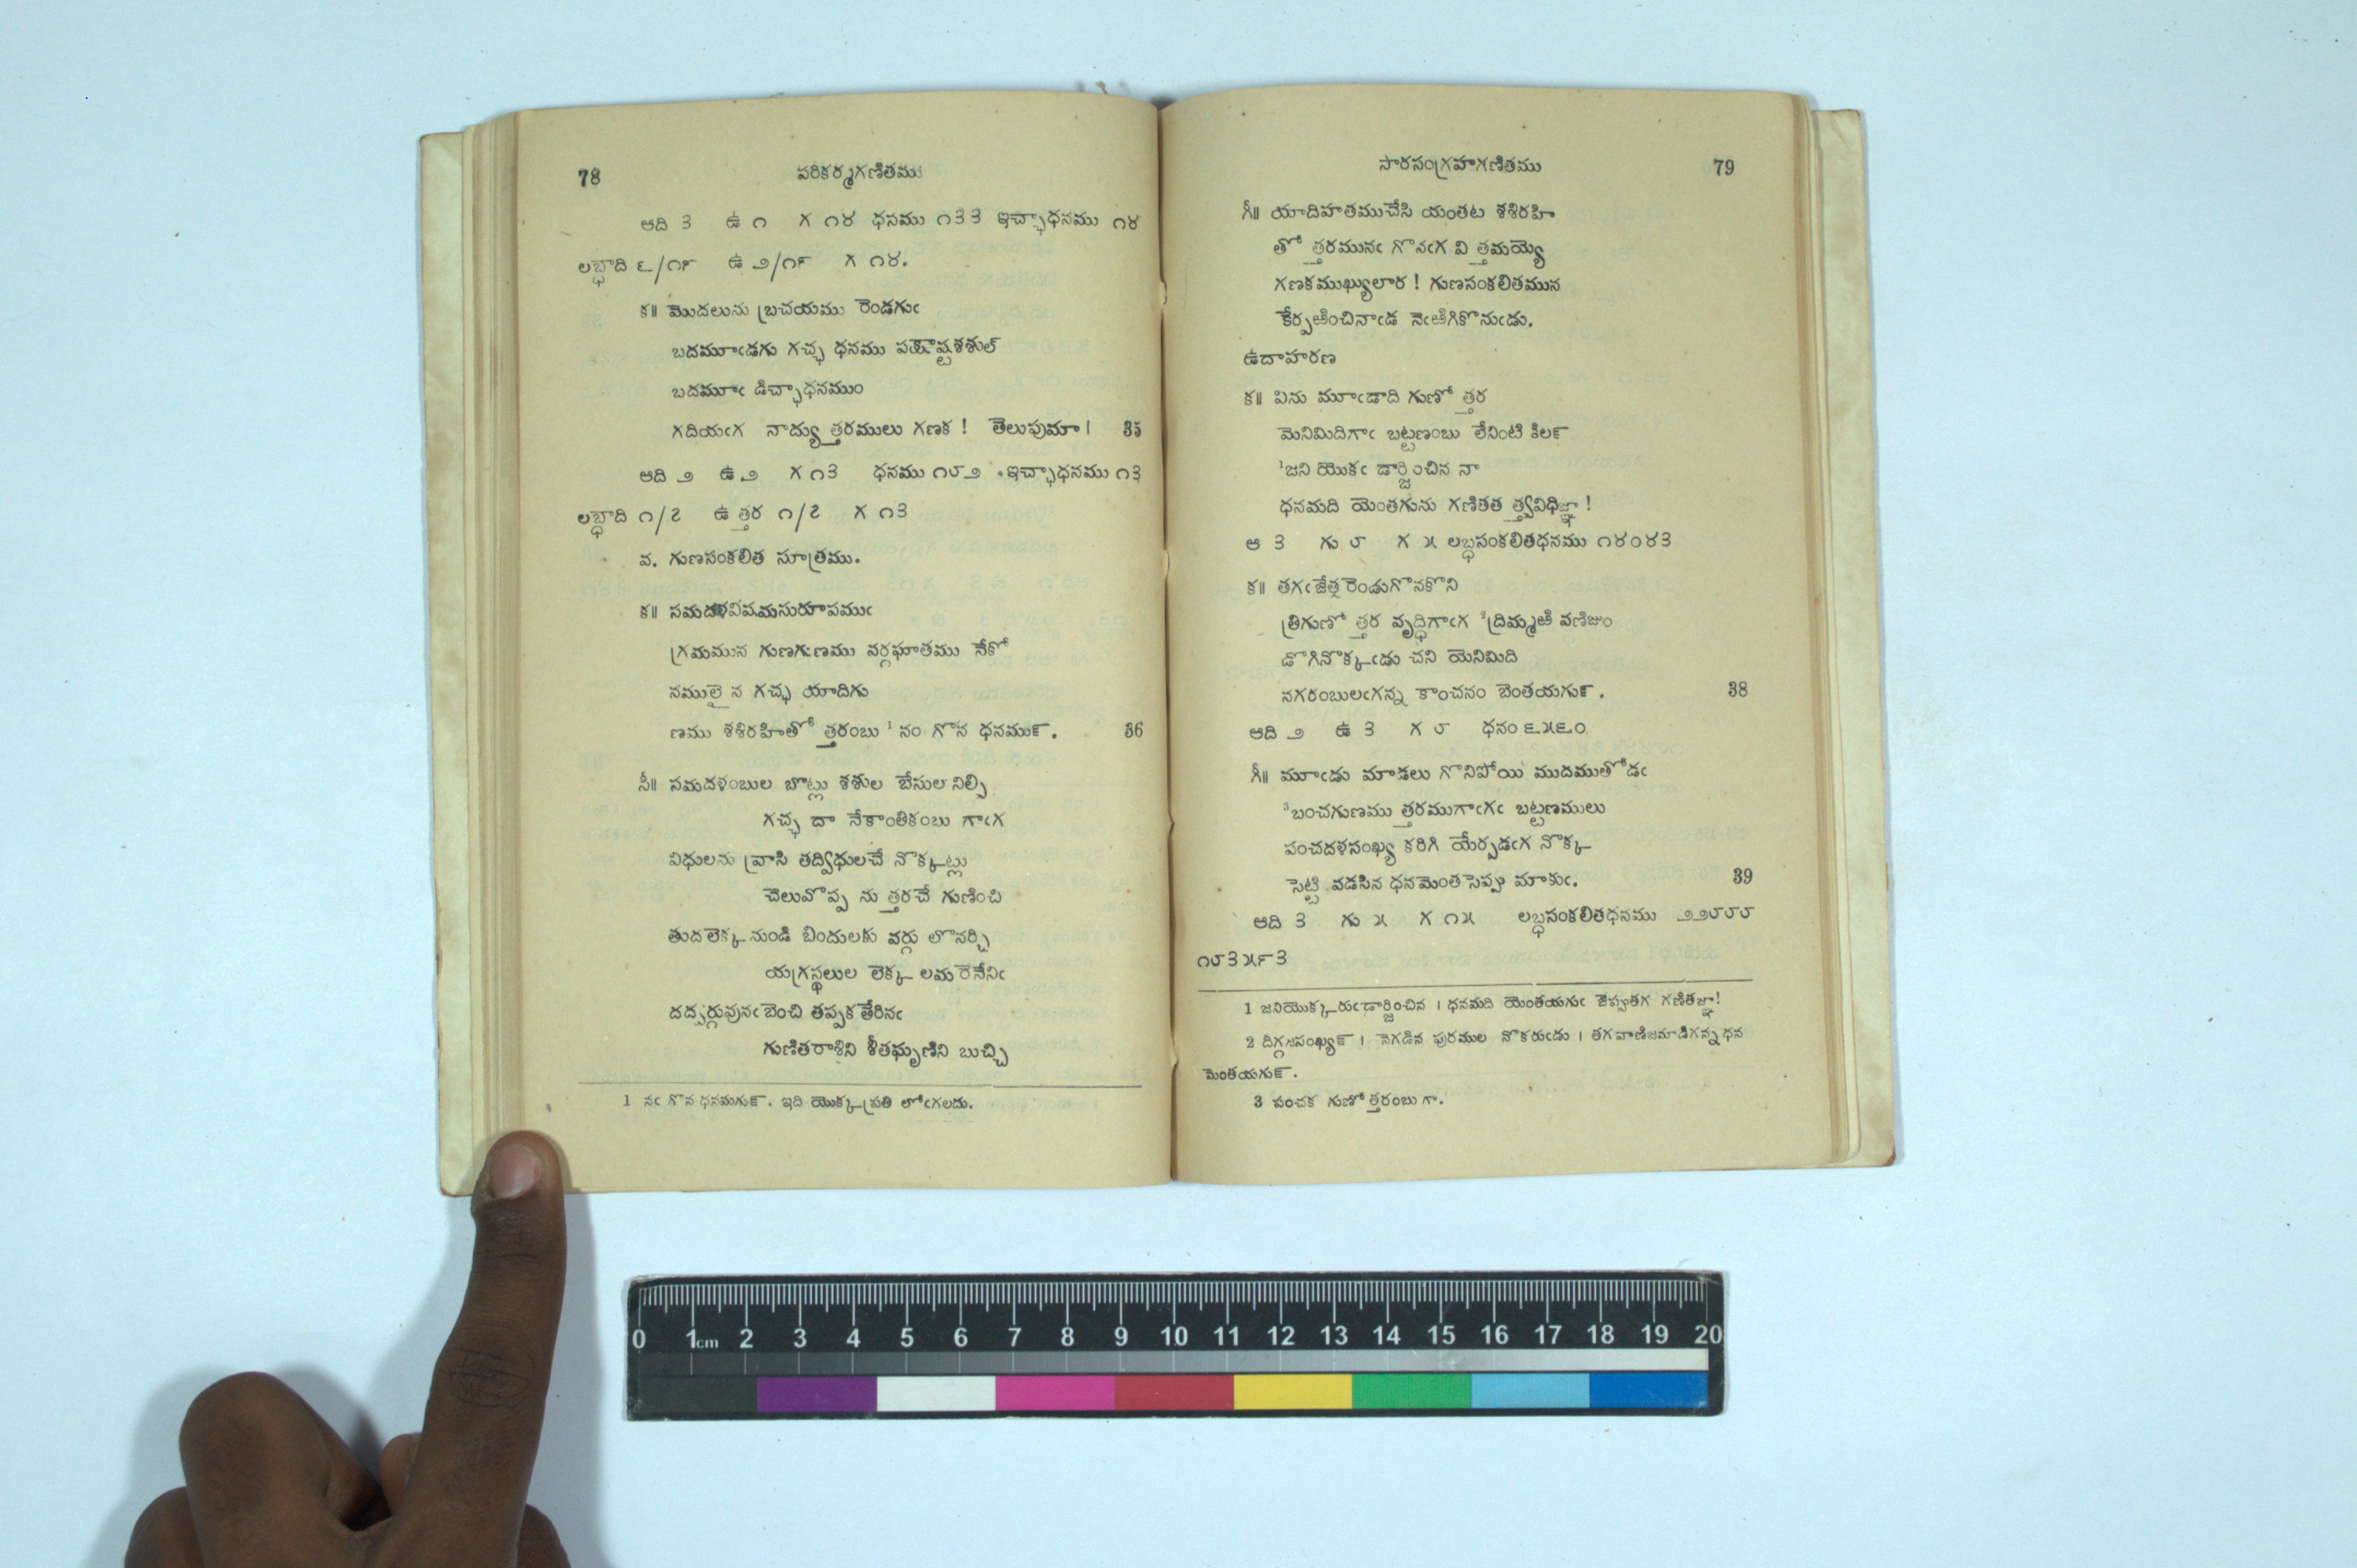 78 పరికర్మగణితము
ఆది ౩ ఉ ౧ గ ౧౪ ధనము ౧౩౩ ఇచ్ఛాధనము ౧౪
లబ్ధాది ౬/౧౯ ఉ ౨/౧౯ గ ౧౪.
క॥ మొదలును బ్రచయము రెండగుఁ
బదమూఁడగు గచ్ఛ ధనము
బదమూఁ డిచ్ఛాధనముం
గదియఁగ నాద్యుత్తరములు గణక! తెలుపుమా। 35
ఆది ౨ ఉ ౨ గ ౧౩ ధనము ౧౮౨ ఇచ్ఛాధనము ౧౩
లబ్ధాది ౧/౭ ఉత్తర ౧/౭ గ ౧౩
వ. గుణసంకలిత సూత్రము.
క॥ సమదళవిషమసురూపముఁ
గ్రమమున గుణగుణము వర్గఘాతము నేకో
నములైన గచ్ఛ యాదిగు
ణము శశిరహితోత్తరంబు ¹నం గొన ధనమౌ. 36
సీ॥ సమదళంబుల బొట్లు శశుల బేసుల నిల్పి
గచ్ఛ దా నేకాంతికంబు గాఁగ
విధులను వ్రాసి తద్విధులచే నొక్కట్లు
చెలువొప్ప నుత్తరచే గుణించి
తుదలెక్క నుండి బిందులకు వర్గు లొనర్చి
యగ్రస్థలుల లెక్క లమరెనేనిఁ
దద్వర్గువునఁ బెంచి తప్పక తేరినఁ
గుణితరాశిని శీతఘృణిని బుచ్చి
1 నఁ గొన ధనమగుఁ. ఇది యొక్క ప్రతి లోఁగలదు.
సారసంగ్రహగణితము 79
గీ॥ యాదిహతముచేసి యంతట శశిరహి
తోత్తరమునఁ గొనఁగ విత్తమయ్యె
గణకముఖ్యులార! గుణసంకలితమున
కేర్పఱించినాఁడ నెఱిఁగికొనుఁడు.
ఉదాహరణ
క॥ విను మూఁడాది గుణోత్తర
మెనిమిదిగాఁ బట్టణంబు లేనింటి కిలన్
¹జని యొకఁ డార్జించిన నా
ధనమది యెంతగును గణితతత్త్వవిధిజ్ఞా!
ఆ ౩ గు ౮ గ ౫ లబ్ధసంకలితధనము ౧౪౦౪౩
క॥ తగఁజేత రెండుగొనకొని
త్రిగుణోత్తర వృద్ధిగాఁగ ²ద్రిమ్మఱి వణిజుం
డొగినొక్కఁడు చని యెనిమిది
నగరంబులఁగన్న కాంచనం బెంతయగున్. 38
ఆది ౨ ఉ ౩ గ ౮ ధనం ౬౫౬౦
గీ॥ మూఁడు మాడలు గొనిపోయి ముదముతోడఁ
³బంచగుణముత్తరముగాఁగఁ బట్టణములు
పంచదశసంఖ్య కరిగి యేర్పడఁగ నొక్క
సెట్టి వడసిన ధనమెంత సెప్పు మాకుఁ. 39
ఆది ౩ గు ౫ గ ౧౫ లబ్ధసంకలితధనము ౨౨౮౮౮
౧౮౩౫౯౩
1 జనియొక్కరుఁడార్జించిన । ధనమది యెంతయగుఁ జెప్పుతగ గణితజ్ఞా!
2 దిగ్గజసంఖ్యన్ । నెగడిన పురముల నొకరుఁడు । తగవాణిజమాడిగన్న ధన
మెంతయగున్.
3 పంచక గుణోత్తరంబుగా.